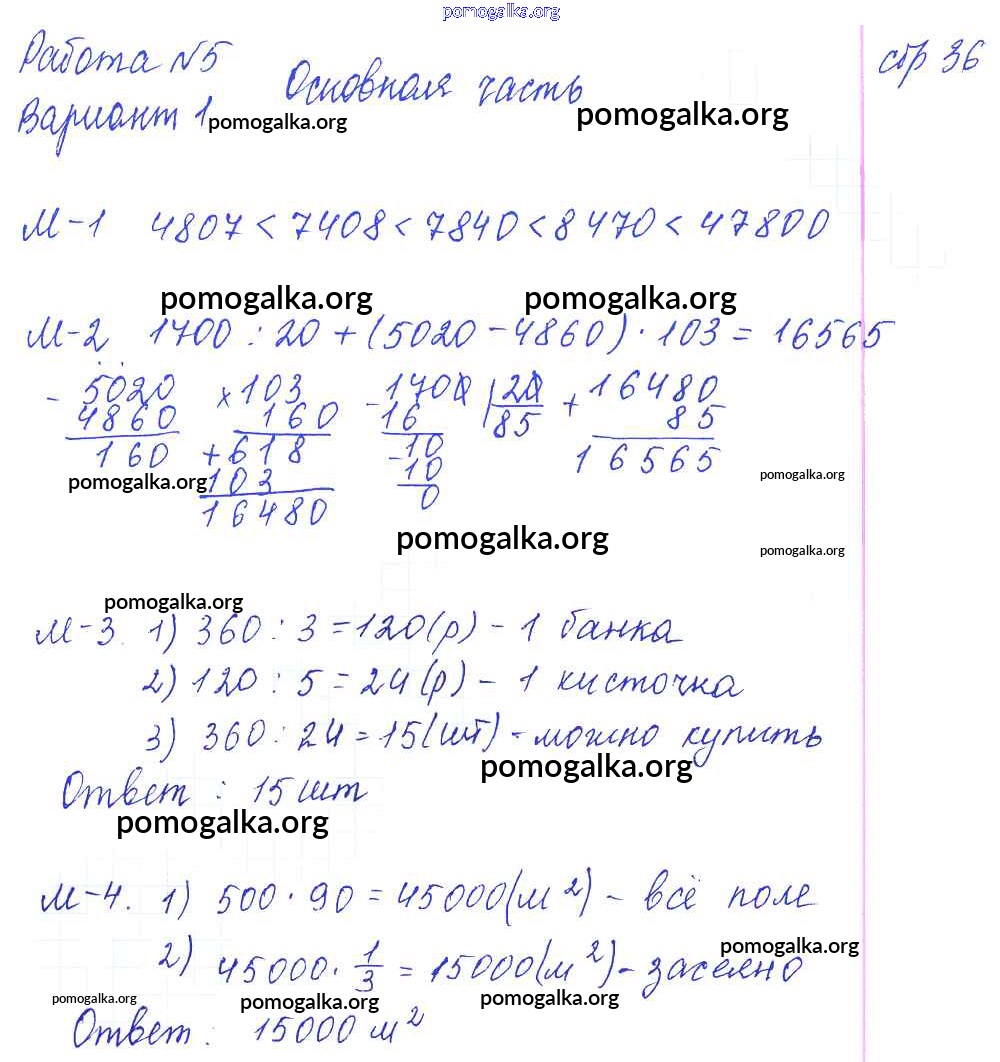 pomogalka.org
Работа №5 стр 36
Основная часть
Вариант 1 pomogalka.org pomogalka.org
М-1 4807 < 7408 < 7840 < 8470 < 47800
pomogalka.org pomogalka.org
М-2 1700 : 20 + (5020 - 4860) · 103 = 16565
- 5020 × 103 - 1700 | 20 + 16480
4860 160 16 85 85
160 + 618 - 10 16565
pomogalka.org 103 10 pomogalka.org
16480 0
pomogalka.org pomogalka.org
pomogalka.org
М-3. 1) 360 : 3 = 120 (р) - 1 банка
2) 120 : 5 = 24 (р) - 1 кисточка
3) 360 : 24 = 15 (шт) - можно купить
pomogalka.org
Ответ : 15 шт
pomogalka.org
М-4. 1) 500 · 90 = 45000 (м²) - всё поле
2) 45000 · 1/3 = 15000 (м²) - засеяно
pomogalka.org
pomogalka.org pomogalka.org pomogalka.org
Ответ : 15000 м²